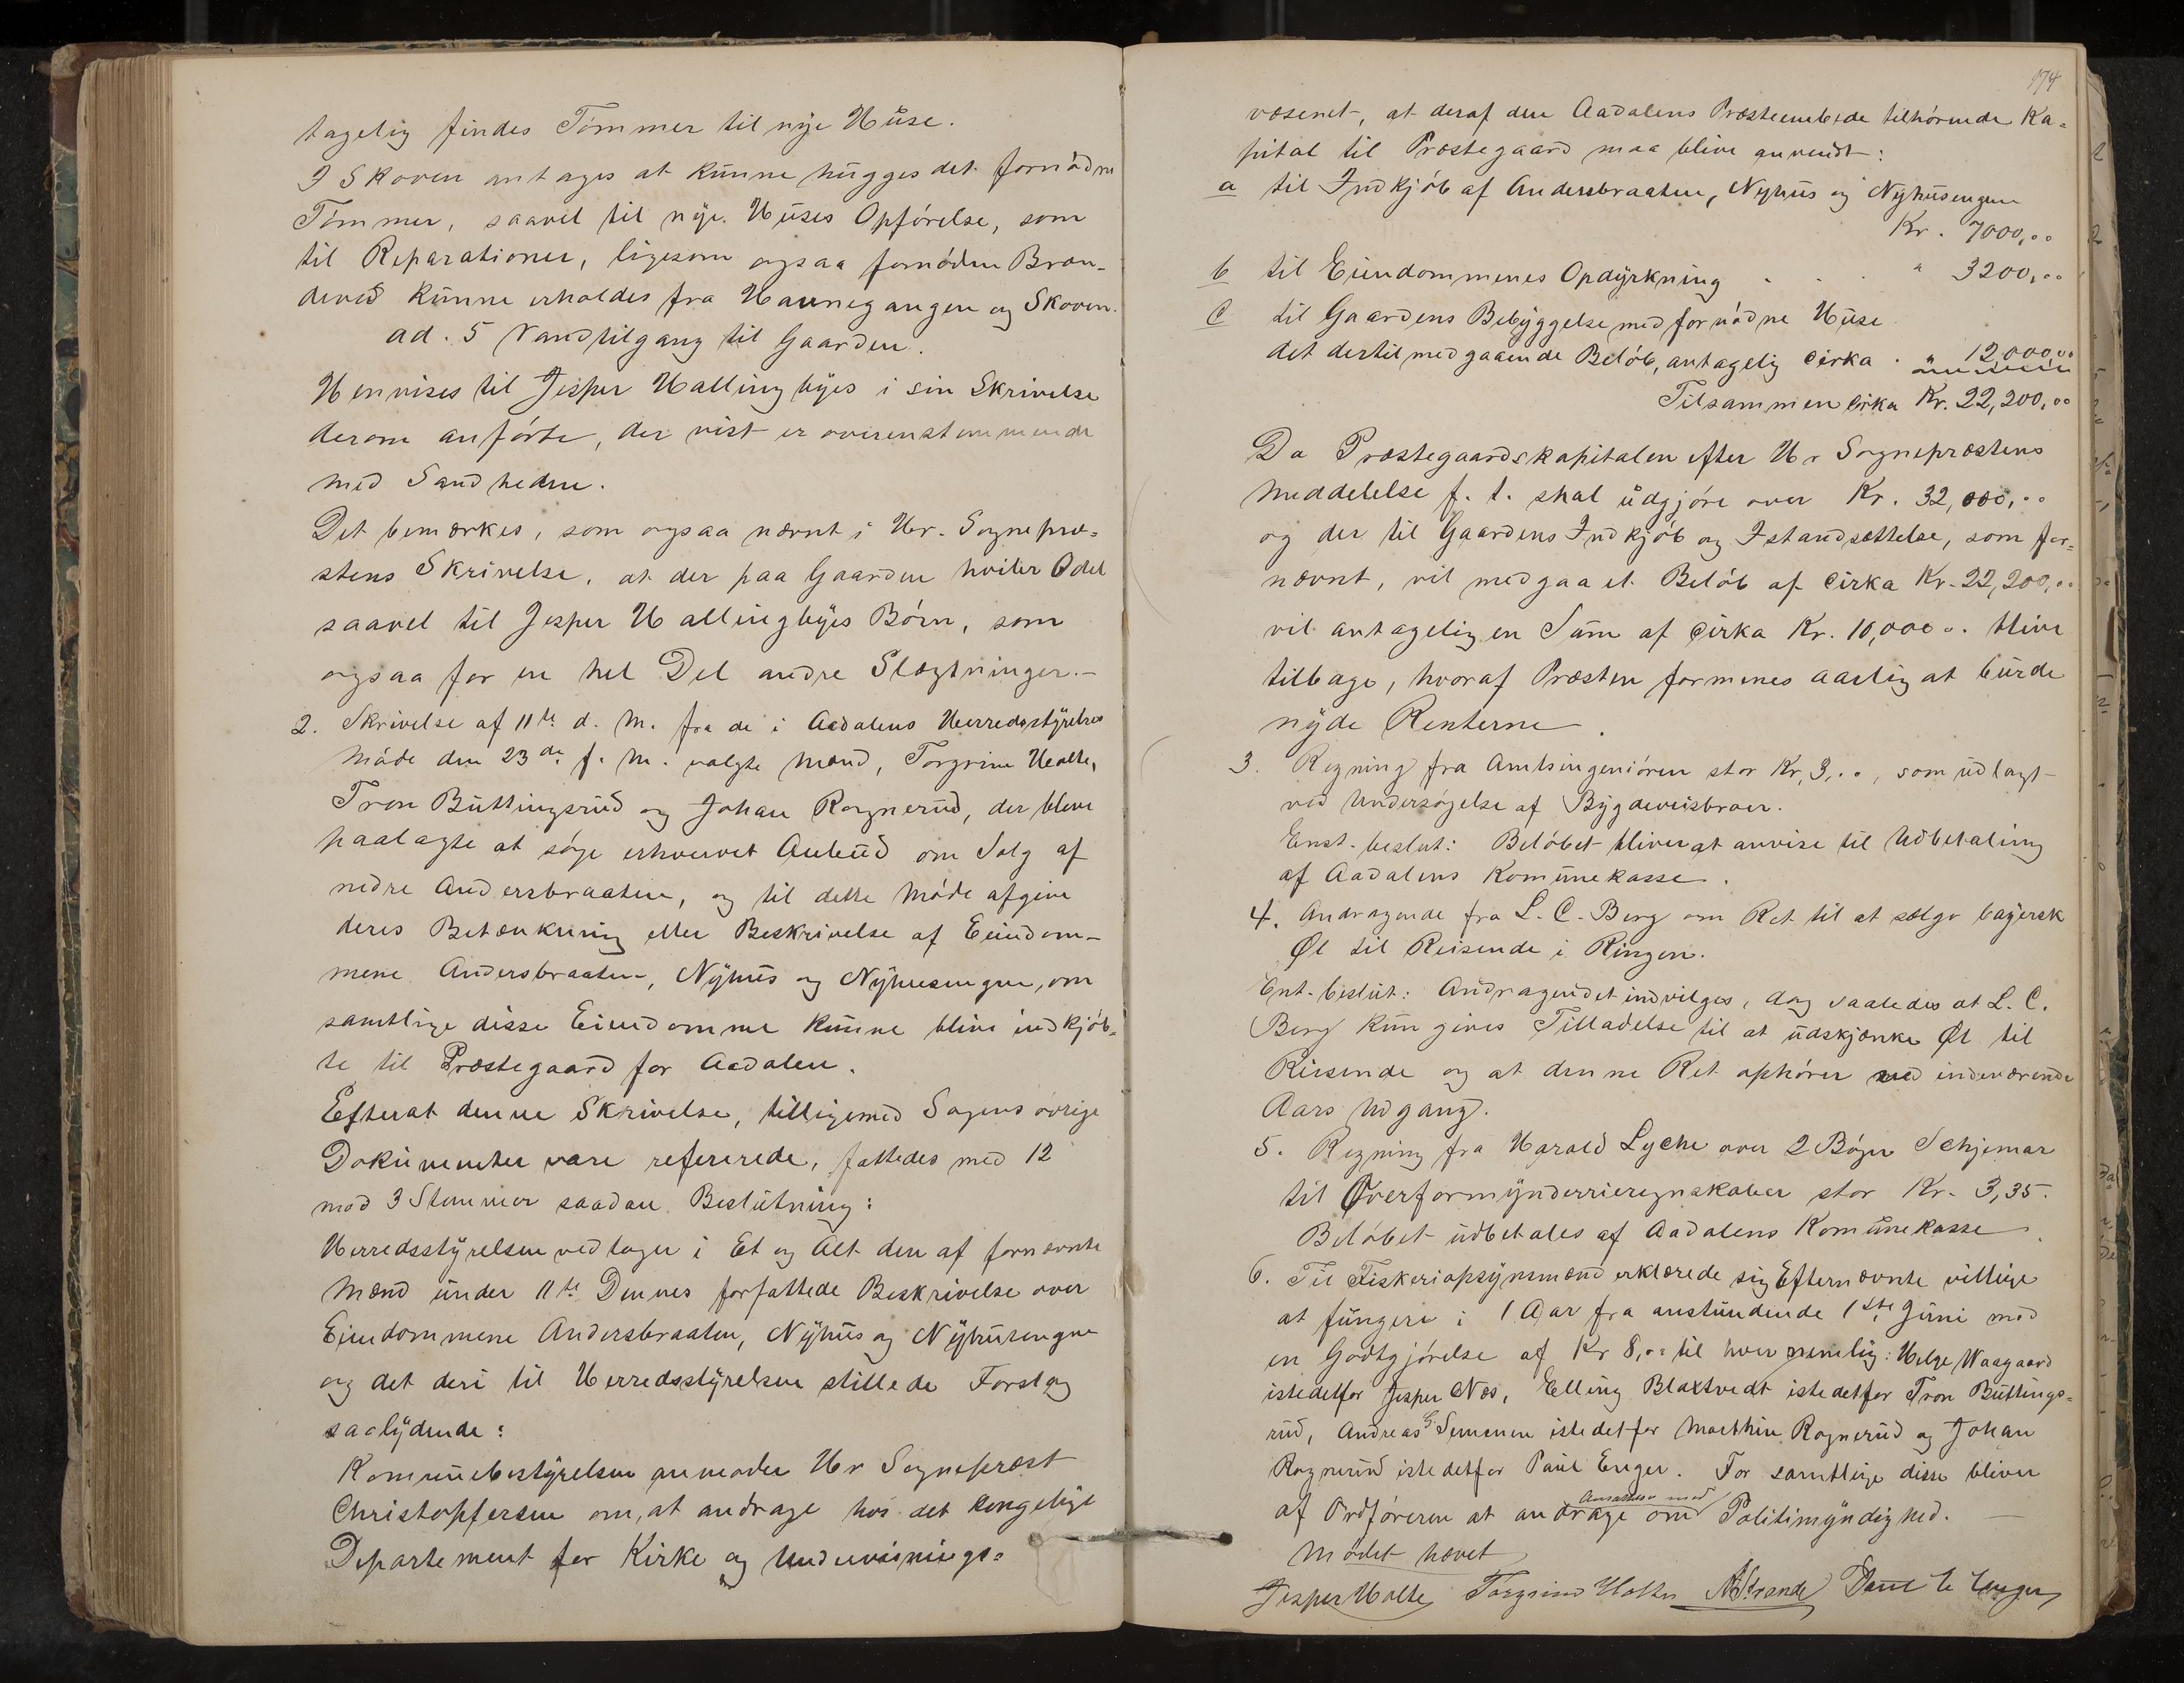 tagelig findes Tömmer til nye Huse.
I Skoven antages at kunne hugges det fornödne
Tömmer, saavel til nye Huses Opförelse, som
til Reparationer, ligesom ogsaa fornöden Bræn-
deved kunne erholdes fra Havnegangen og Skoven.
ad. 5 Vandtilgang til Gaarden.
Henvises til Jesper Hallingbyes i sin Skrivelse
derom anförte, der vist er overenstemmende
med Sandheden.
Det bemærkes, som ogsaa nævnt i Hr. Sognepræ-
stens Skrivelse, at der paa Gaarden hviler Odel
saavel til Jesper Hallingbyes Börn, som
ogsaa for en hel Del andre Slægtninger.-
2. Skrivelse af 11te d. M. fra de i Aadalens Herredsstyrelses
Möde den 23de f. M. valgte Mænd, Torgrim Holte,
Tron Buttingsrud og Johan Rognerud, der bleve
paalagte at söge erhvervet Anbud om Salg af
nedre Andersbraaten, og til dette Möde afgive
deres Betænkning eller Beskrivelse af Eiendom-
mene Andersbraaten, Nyhus og Nyhusengen, om
samtlige disse Eiendomme kunne blive indkjöb-
te til Præstegaard for Aadalen.
Efterat denne Skrivelse, tilligemed Sagens övrige
Dokumenter vare refererede, fattedes med 12
mod 3 Stemmer saadan Beslutning:
Herredsstyrelsen vedtager i Et og Alt den af fornævnte
Mænd under 11te Dennes forfattede Beskrivelse over
Eiendommene Andersbraaten, Nyhus og Nyhusengen
og det deri til Herredsstyrelsen stillede Forslag
saalydende:
Kommunebestyrelsen anmoder Hr Sognepræst
Christoffersen om, at andrage hos det kongelige
Departement for Kirke og Undervisnings-
174
væsenet, at deraf den Aadalens Præsteembede tilhörende Ka-
pital til Præstegaard maa blive anvendt:
a til Indkjöb af Andersbraaten, Nyhus og Nyhusengen
Kr. 7000,00
b til Eiendommenes Opdyrkning . . . " 3200,00
c til Gaardens Bebyggelse med fornödne Huse
det dertil medgaaende Belöb, antagelig cirka . " 12,000,00
Tilsammen cirka Kr. 22,200,00
Da Præstegaardskapitalen efter Hr Sognepræstens
Meddelelse f. t. skal udgjöre over Kr. 32,000,00
og der til Gaardens Indkjöb og Istandsættelse, som for-
nævnt, vil medgaa et Belöb af cirka Kr. 22,200,00
vil antagelig en Sum af cirka Kr. 10,000 00. blive
tilbage, hvoraf Præsten formenes aarlig at burde
nyde Renterne.
3. Regning fra Amtsingeniören stor Kr, 3,00, som udlagt
ved Undersögelse af Bygdeveisbroer.
Enst. beslut: Belöbet bliver at anvise til Udbetaling
af Aadalens Kommunekasse.
4. Andragende fra L. C. Berg om Ret til at sælge bayersk
Øl til Reisende i Ringen.
Ent. beslut: Andragendet indvilges, dog saaledes at L. C.
Berg kun gives Tilladelse til at udskjænke Øl til
Reisende og at denne Ret ophörer ved indeværende
Aars Udgang.
5. Regning fra Harald Lyche over 2 Böger Schjemar
til Overformynderriregnskaber stor Kr. 3,35.
Belöbet udbetales af Aadalens Kommunekasse.
6. Til Fiskeriopsynsmænd erklærede sig Efternævnte villige
at fungere i 1 Aar fra anstundende 1ste Juni mod
en Godtgjörelse af Kr 8,00 til hver nemlig: Helge Waagaard
istedetfor Jesper Næs, Elling Blakstvedt istedetfor Tron Buttings-
rud, Andreas G. Semmen istedetfor Marthin Rognerud og Johan
Rognerud istedetfor Paul Enger. For samtlige disse bliver
Ansættelse med
af Ordföreren at andrage om Politimyndighed.
Mödet hævet
Jesper Holte Torgrim Holte Strande Paul E Enger